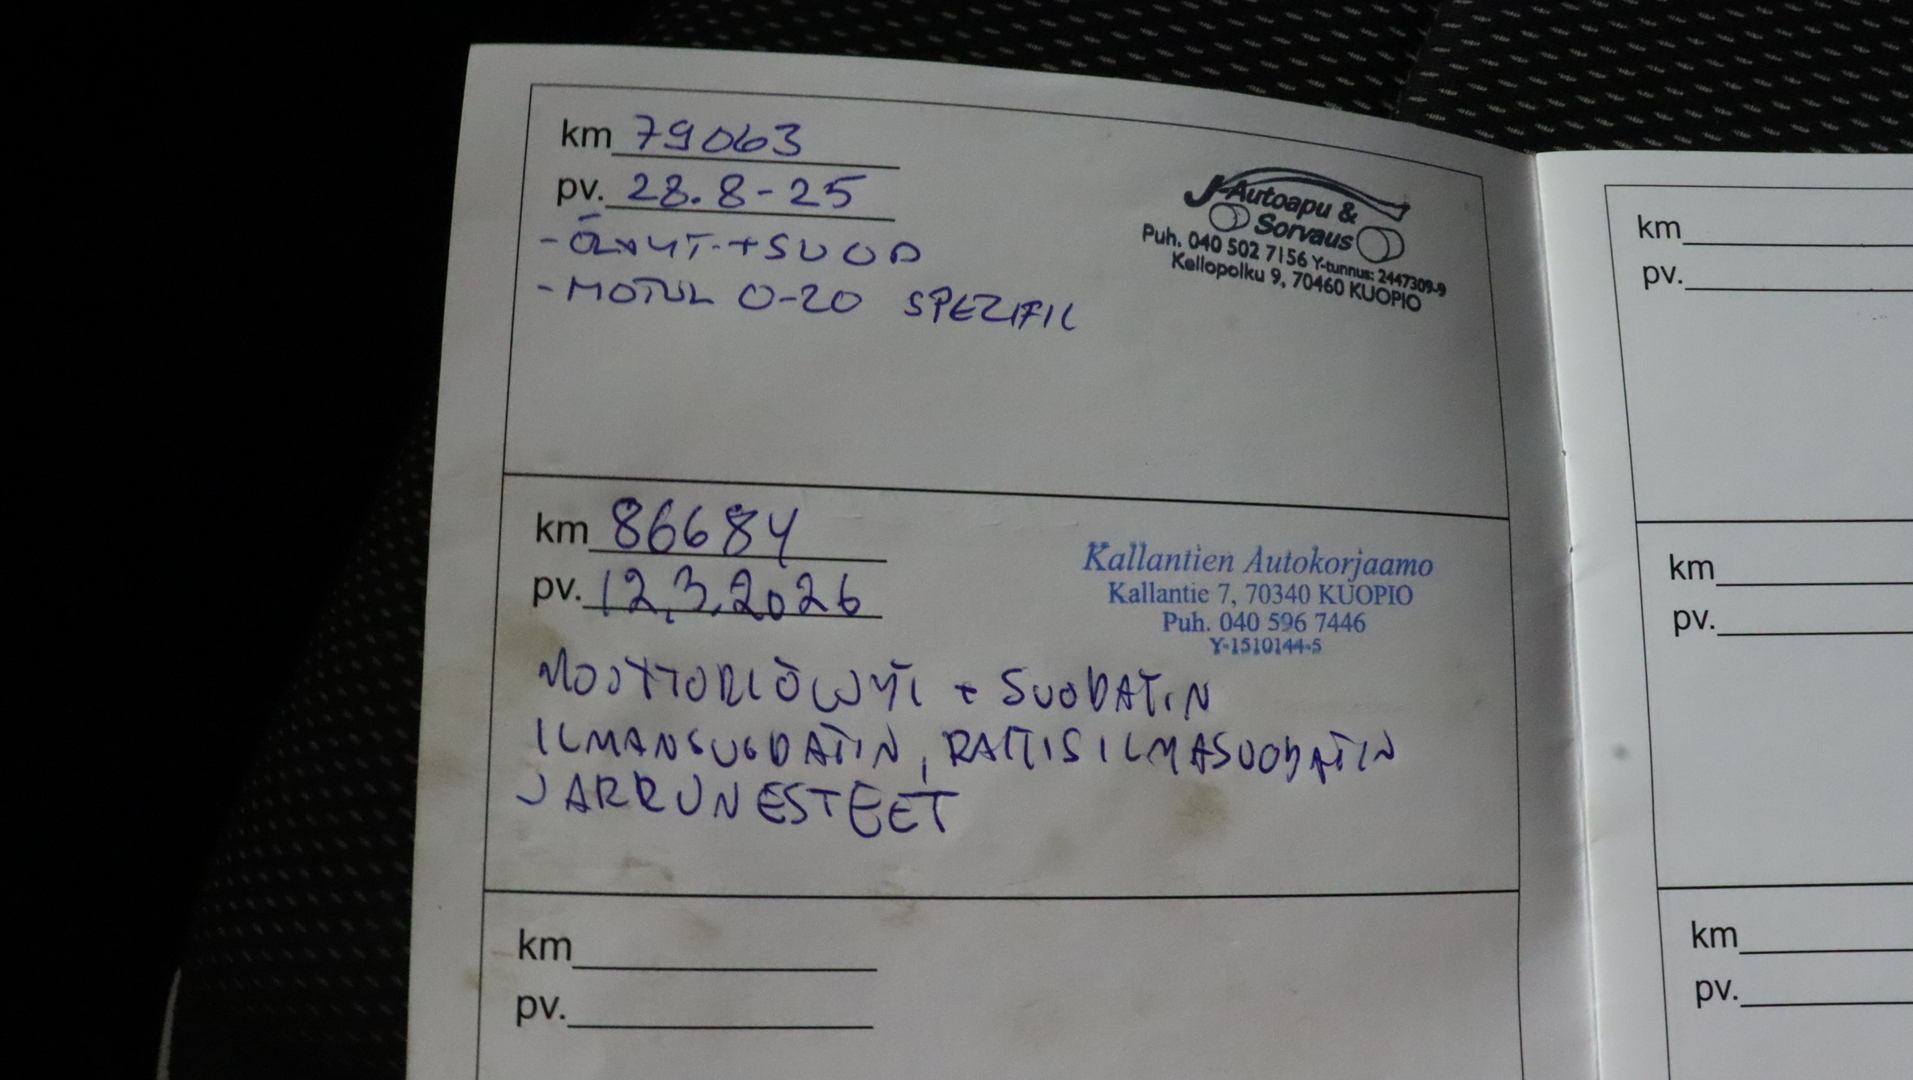 km 79063
pv. 28.8-25
- ÖLJYT + SUOD
- MOTUL 0-20 SPEZIFIC
J-Autoapu &
Sorvaus
Puh. 040 502 7156 Y-tunnus: 2447309-9
Kellopolku 9, 70460 KUOPIO
km 86684
pv. 12.3.2026
Kallantien Autokorjaamo
Kallantie 7, 70340 KUOPIO
Puh. 040 596 7446
Y-1510144-5
MOOTTORIÖLJYT + SUODATIN
ILMANSUODATIN, RAITISILMASUODATIN
JARRUNESTEET
km
pv.
km
pv.
km
pv.
km
pv.